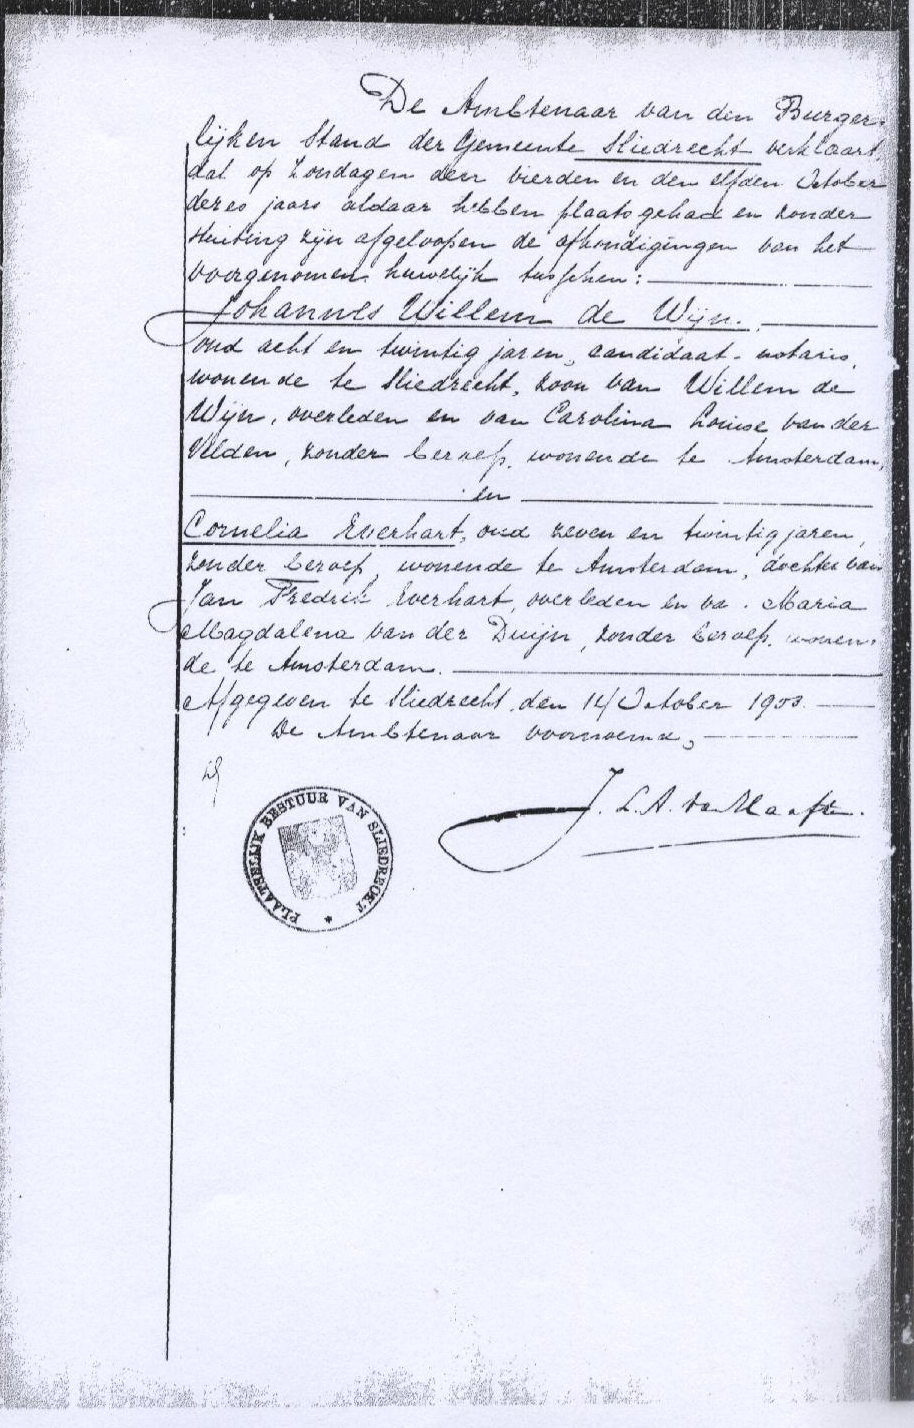 De Ambtenaar van den Burger-
lijken Stand der Gemeente Sliedrecht verklaart,
dat op Zondagen den vierden en den elfden October
dezes jaars aldaar hebben plaats gehad en zonder
stuiting zijn afgeloopen de afkondigingen van het
voorgenomen huwelijk tusschen:
Johannes Willem de Wijn.
oud acht en twintig jaren, candidaat-notaris,
wonende te Sliedrecht, zoon van Willem de
Wijn, overleden en van Carolina Louise van der
Velden, zonder beroep, wonende te Amsterdam,
en
Cornelia Everhart, oud zeven en twintig jaren,
zonder beroep, wonende te Amsterdam, dochter van
Jan Fredrik Everhart, overleden en va . Maria
Magdalena van der Duijn, zonder beroep, wonen-
de te Amsterdam.
Afgegeven te Sliedrecht, den 14 October 1903.
De Ambtenaar voornoemd,
J. L. A.
PLAATSELIJK BESTUUR VAN SLIEDRECHT *